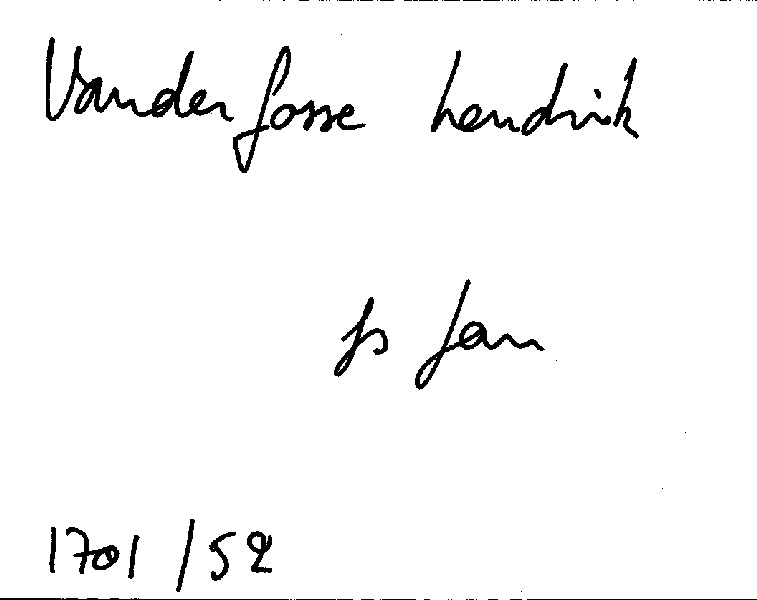 Vander fosse hendrik
fs Jan
1701 / 52